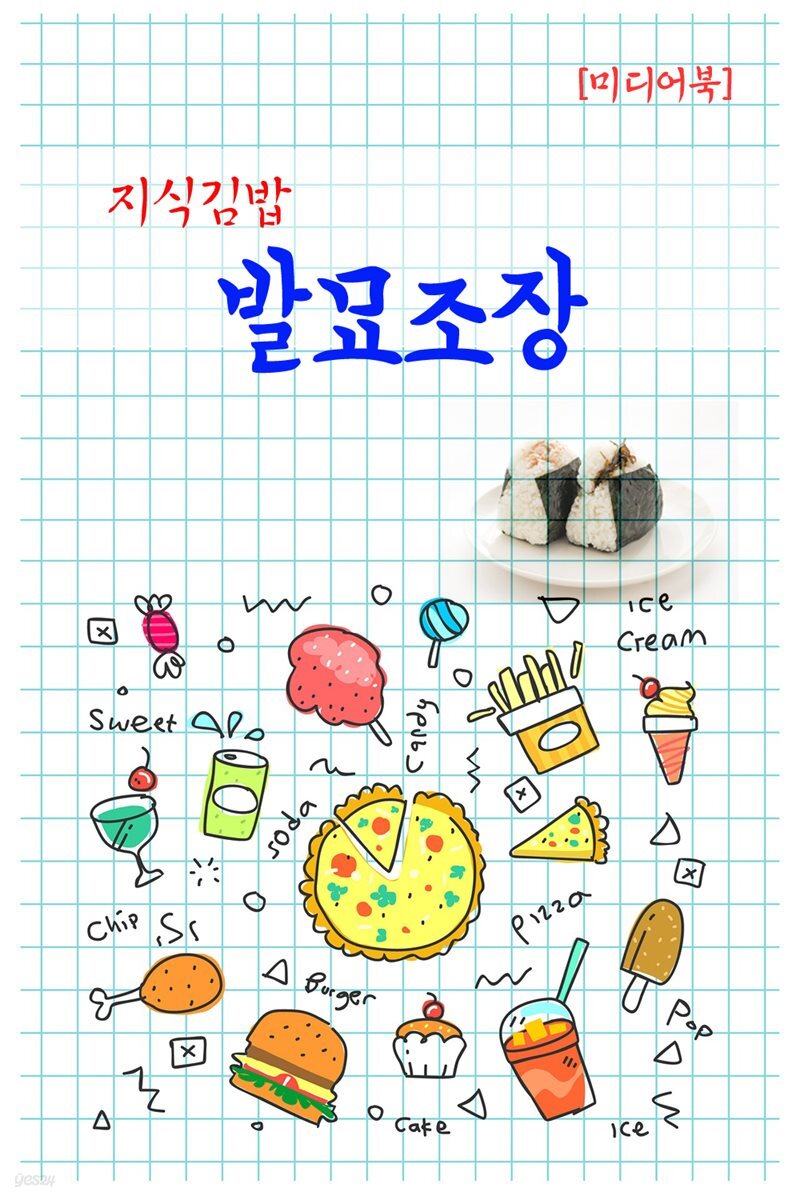 [미디어북]
지식김밥
발묘조장
ice
cream
Sweet
Candy
soda
Chip
pizza
Burger
Pop
Cake
ice
yes24